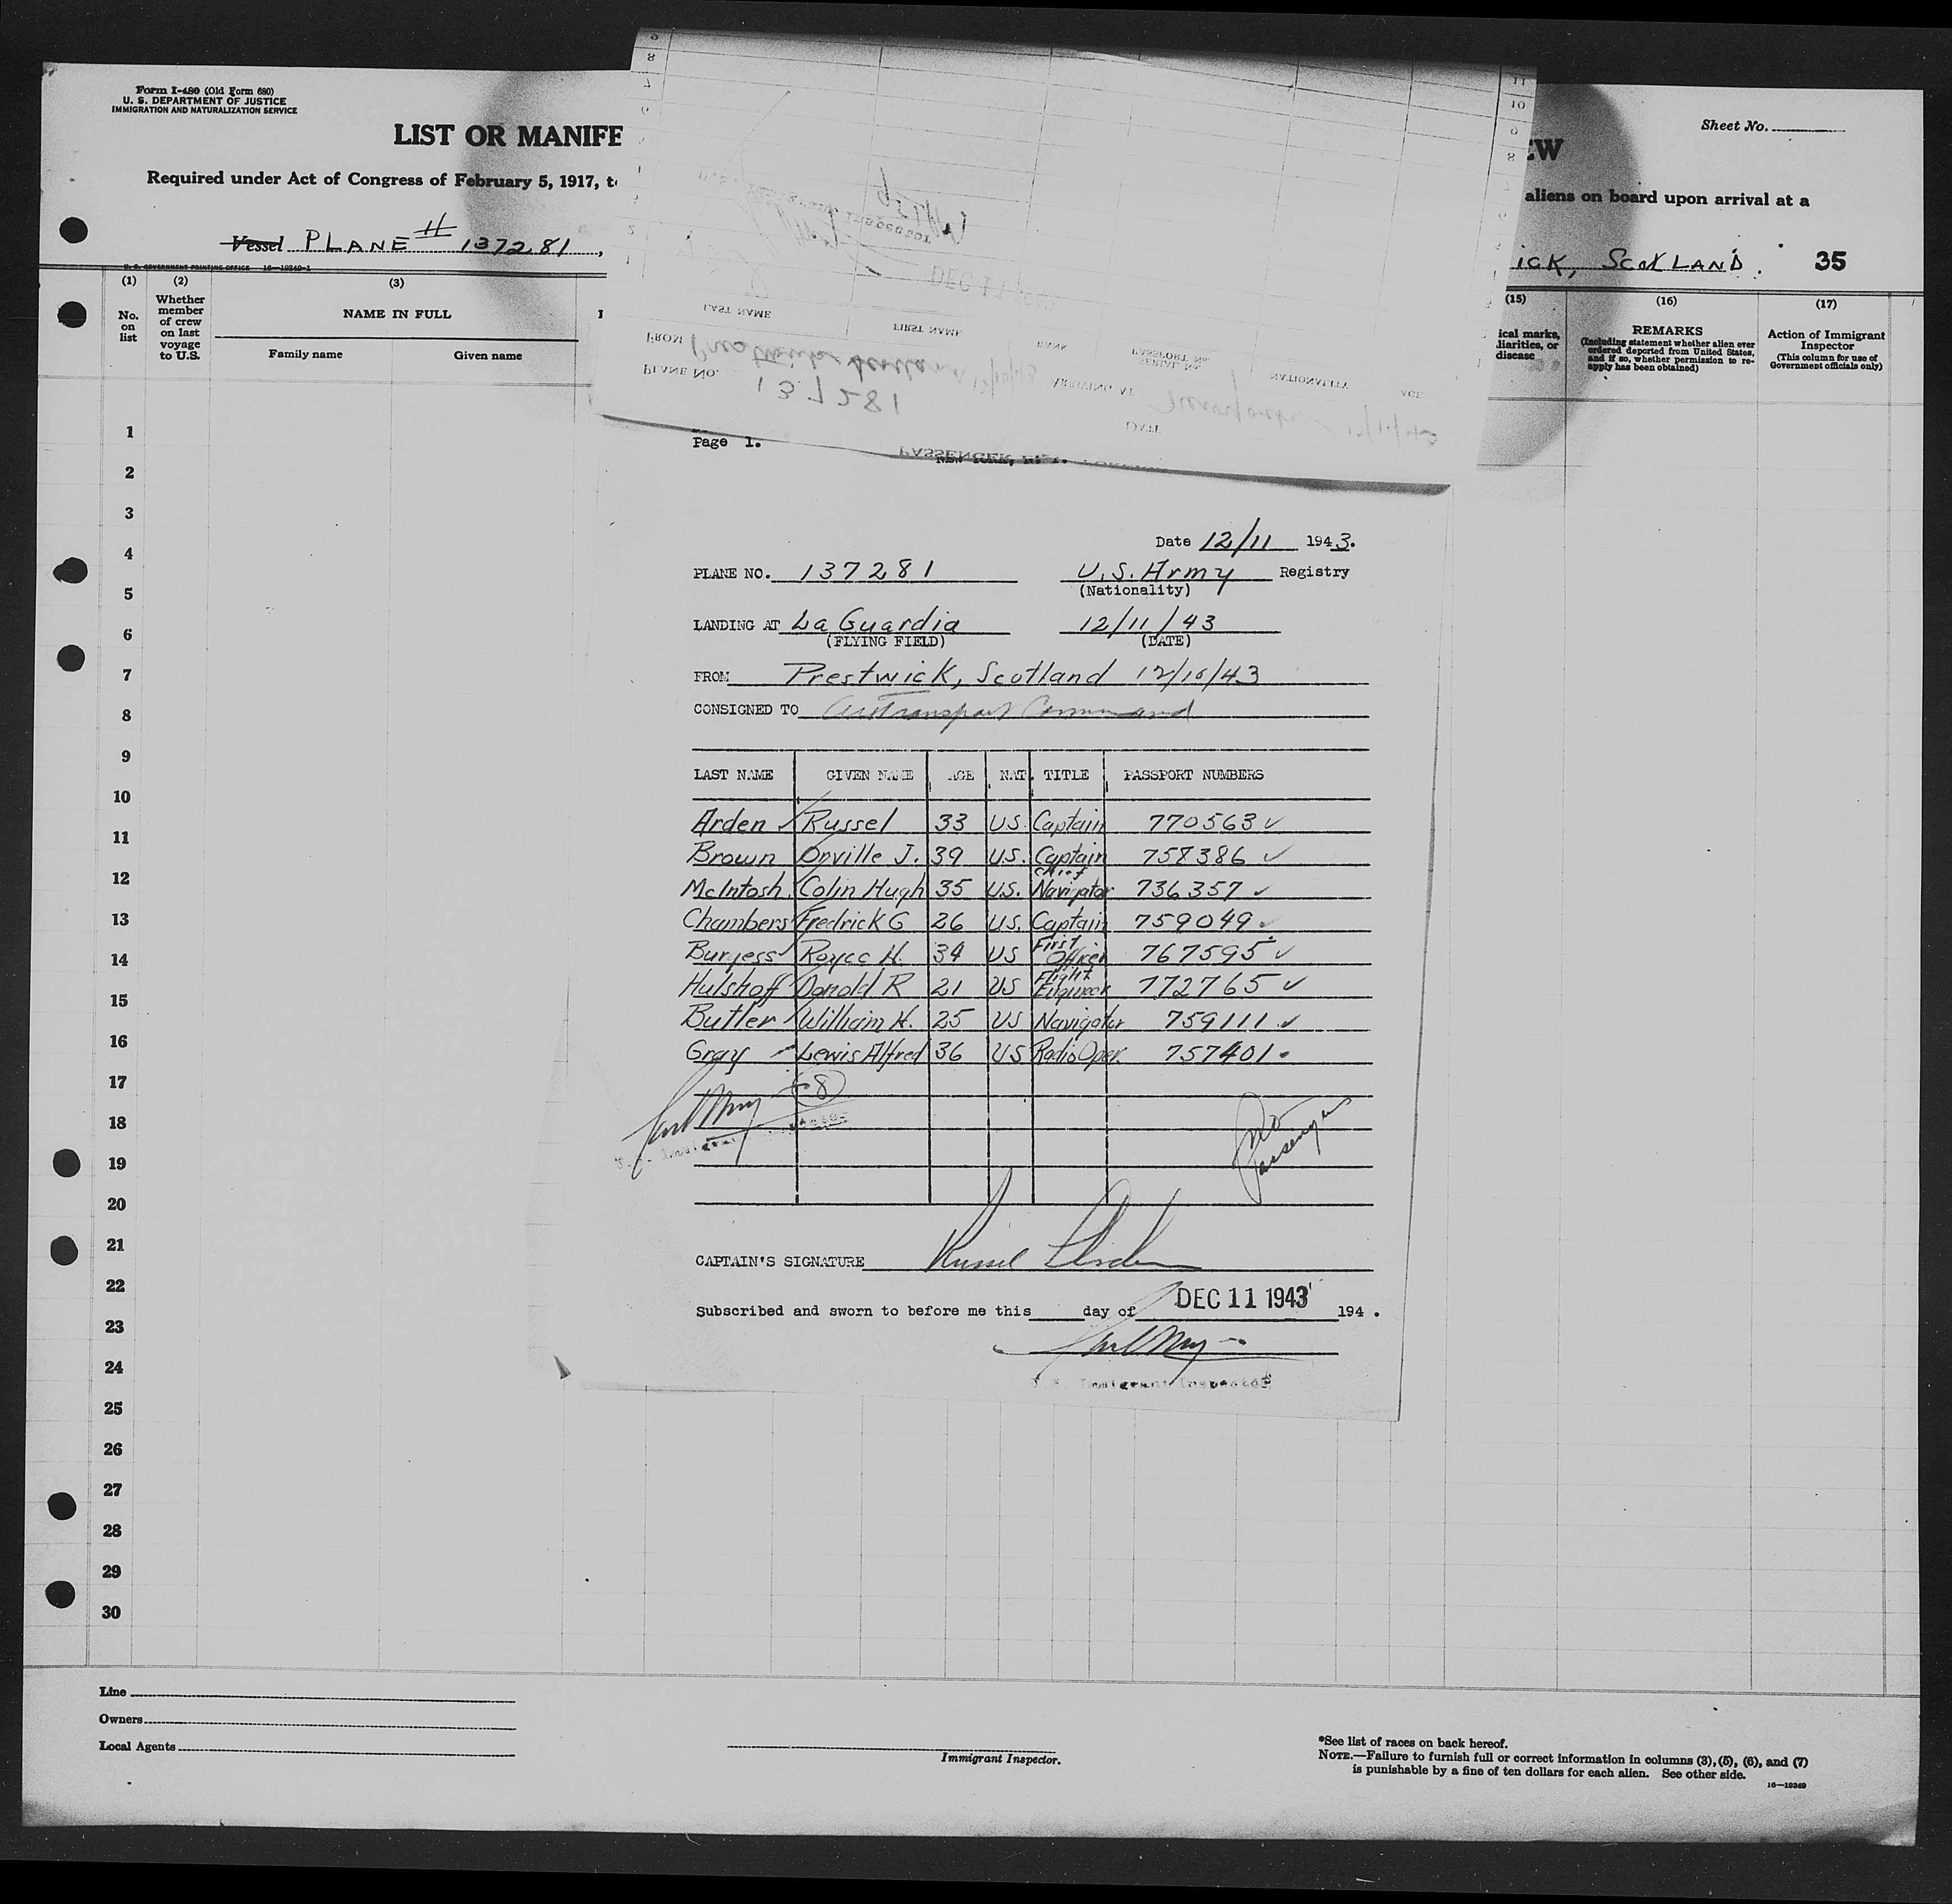 Form I-480 (Old Form 680)
U. S. DEPARTMENT OF JUSTICE
IMMIGRATION AND NATURALIZATION SERVICE
Sheet No.
LIST OR MANIFE
EW
Required under Act of Congress of February 5, 1917, t
aliens on board upon arrival at a
Vessel PLANE # 137281,
ICK, SCOTLAND. 35
U. S. GOVERNMENT PRINTING OFFICE 16—19349-1
(1) (2) (3) (15) (16) (17)
No. on list
Whether member of crew on last voyage to U.S.
NAME IN FULL
Family name Given name
ical marks, liarities, or disease
REMARKS
(Including statement whether alien ever ordered deported from United States, and if so, whether permission to re-apply has been obtained)
Action of Immigrant Inspector
(This column for use of Government officials only)
DEC 11
LAST NAME FIRST NAME RANK PASSPORT No. SERIAL No. NATIONALITY AGE
FROM ARRIVING AT
PLANE No. 137281 DATE
Page 1.
NEW YORK, N.Y.
Date 12/11 1943.
PLANE NO. 137281 U.S. Army Registry
(Nationality)
LANDING AT La Guardia 12/11/43
(FLYING FIELD) (DATE)
FROM Prestwick, Scotland 12/10/43
CONSIGNED TO Air Transport Command
LAST NAME GIVEN NAME AGE NAT. TITLE PASSPORT NUMBERS
Arden Russel 33 U.S. Captain 770563 ✓
Brown Orville J. 39 U.S. Captain 758386 ✓
McIntosh Colin Hugh 35 U.S. Chief Navigator 736357 ✓
Chambers Fredrick G 26 U.S. Captain 759049 ✓
Burgess Royce H. 34 US First Officer 767595 ✓
Hulshoff Donald R 21 US Flight Engineer 772765 ✓
Butler William H. 25 US Navigator 759111 ✓
Gray Lewis Alfred 36 US Radio Oper. 757401
8
No Passengers
CAPTAIN'S SIGNATURE Russel Arden
Subscribed and sworn to before me this day of DEC 11 1943 194 .
U. S. Immigrant Inspector
1
2
3
4
5
6
7
8
9
10
11
12
13
14
15
16
17
18
19
20
21
22
23
24
25
26
27
28
29
30
Line
Owners
Local Agents
Immigrant Inspector.
*See list of races on back hereof.
NOTE.—Failure to furnish full or correct information in columns (3), (5), (6), and (7)
is punishable by a fine of ten dollars for each alien. See other side.
16—19349